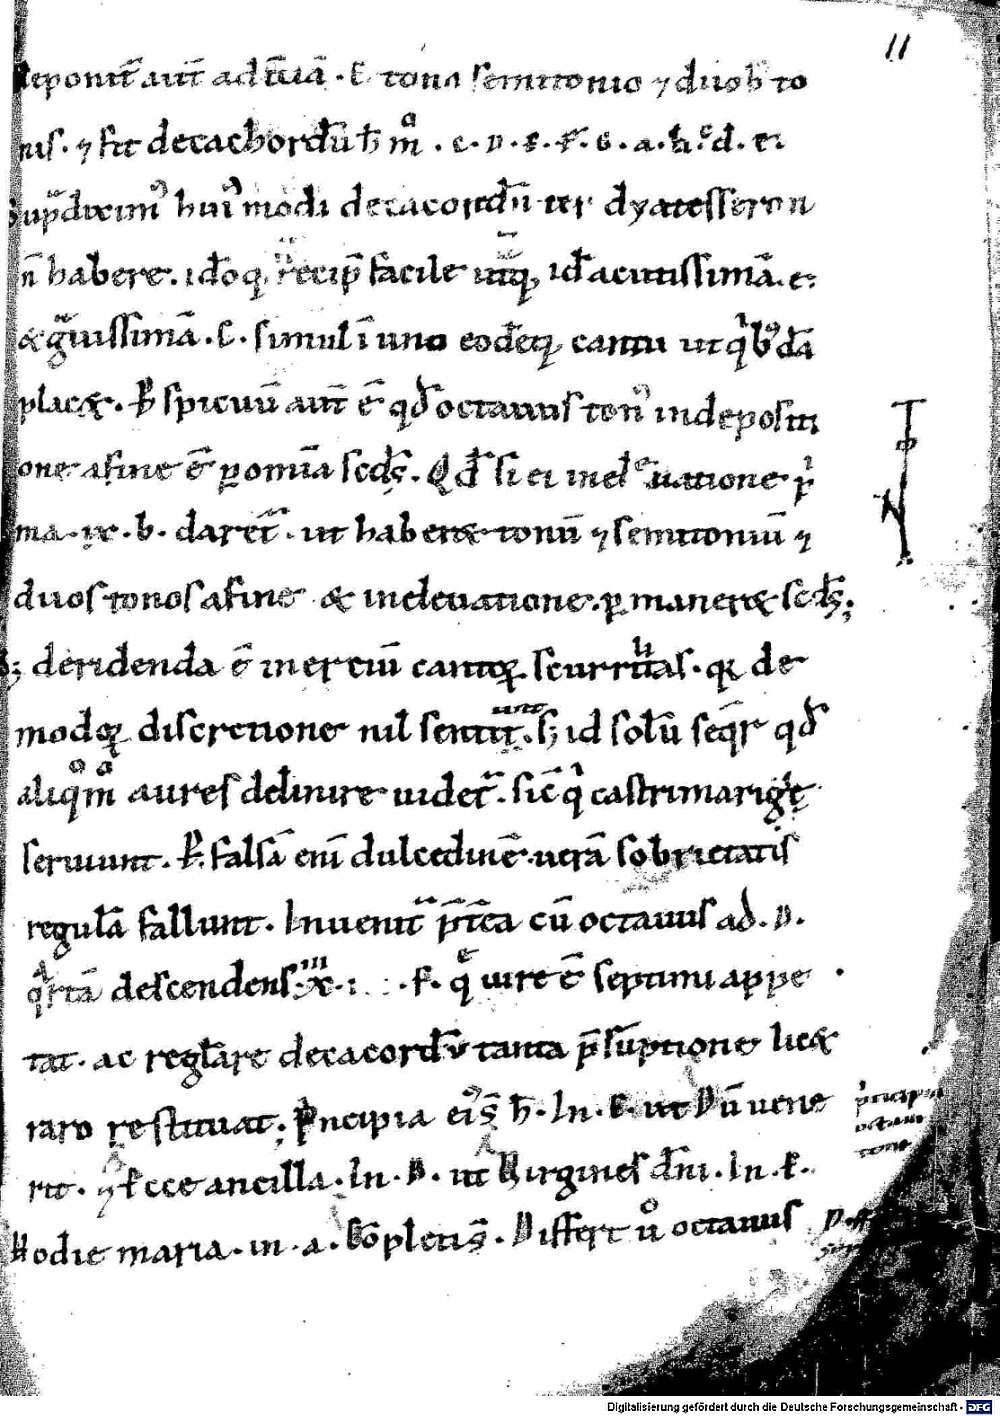 11
deponit̄ aut̄ ad t̄ciā · E tono semitonio ⁊ duob; to
nis. ⁊ fit decachordū h̄ mͦ · C · D · E · F · G · a · h · c · d · e ·
huiꝰmodi decacordū ter dyatesseron
n̄ habere. idoq, recip̄ facile utq, id acutissimā · e ·
& gͣuissimā · C · simul ī uno eodēq, cantu ut qͥbꝰdā
placet. P̱spicuū aut̄ ē qđ octauus tonꝰ in depositi
one a fine ē ꝑ omīa scđs. Qđ si ei in eleuatione pͥ
ma · ix · b · daret̄ · ut haberet tonū ⁊ semitoniū ⁊
duos tonos a fine & in eleuatione · ꝑmaneret scđs;
S; deridenda ē inerciū cantoꝝ scurrilitas · qꝛ de
modoꝝ discretione nil sentiunt · s; id solū seq̄r qđ
aliqͦ mͦ aures delinire uidet̄ · sic̄ qͥ castrimargię
seruiunt · P̱ falsā enī dulcedinē · uerā sobrietatis
regulā fallunt · Inuenit̄ p̄t̄ea cū octauus ad · D ·
qͣrtā descendens · F · qͣ iure ē septimi appe
tat · ac regl̄are decacordū tanta p̄sūptione licet
raro restituat · Pͥncipia eiꝰ s̄ h̄ · In · C · ut Dū uene
rit · ⁊ Ecce ancilla · In · D · ut Virgines dn̄i · In · F ·
Hodie maria · in · a · Cōpletis̄ · Differt ū octauus
pͥncipia
octaui
toni